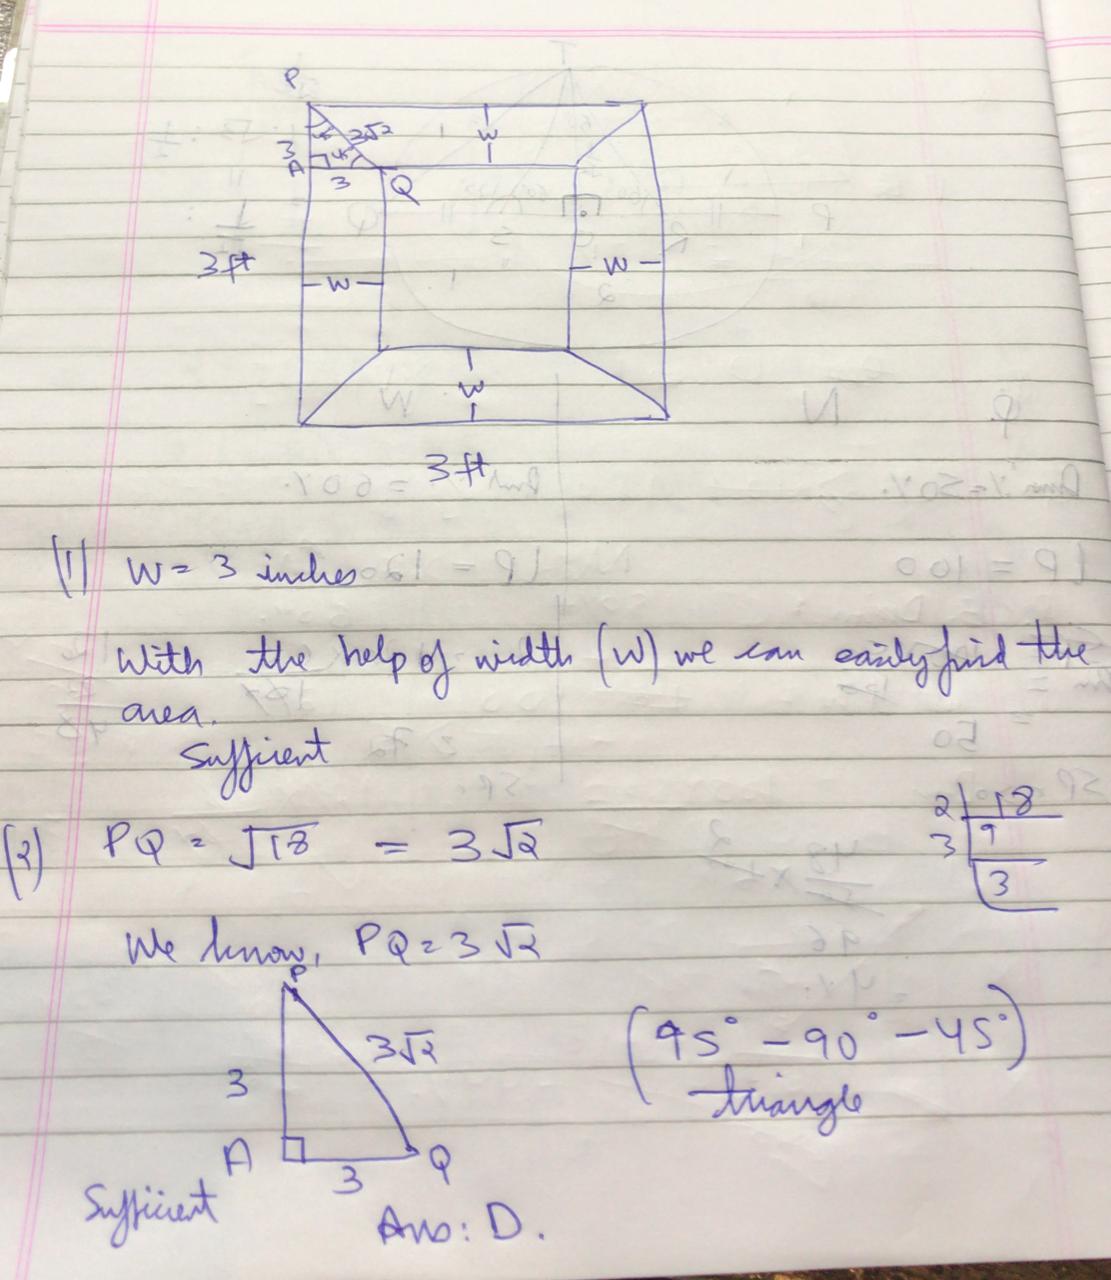 P
W
3√2
3
A
3
Q
3 ft
W
W
W
3 ft
(1) W = 3 inches
With the help of width (W) we can easily find the
area.
Sufficient
(2) PQ = √18 = 3√2
2 | 18
3 | 9
3
We know, PQ = 3√2
P
3√2
3
(45° - 90° - 45°)
triangle
A
3
Q
Sufficient
Ans: D.